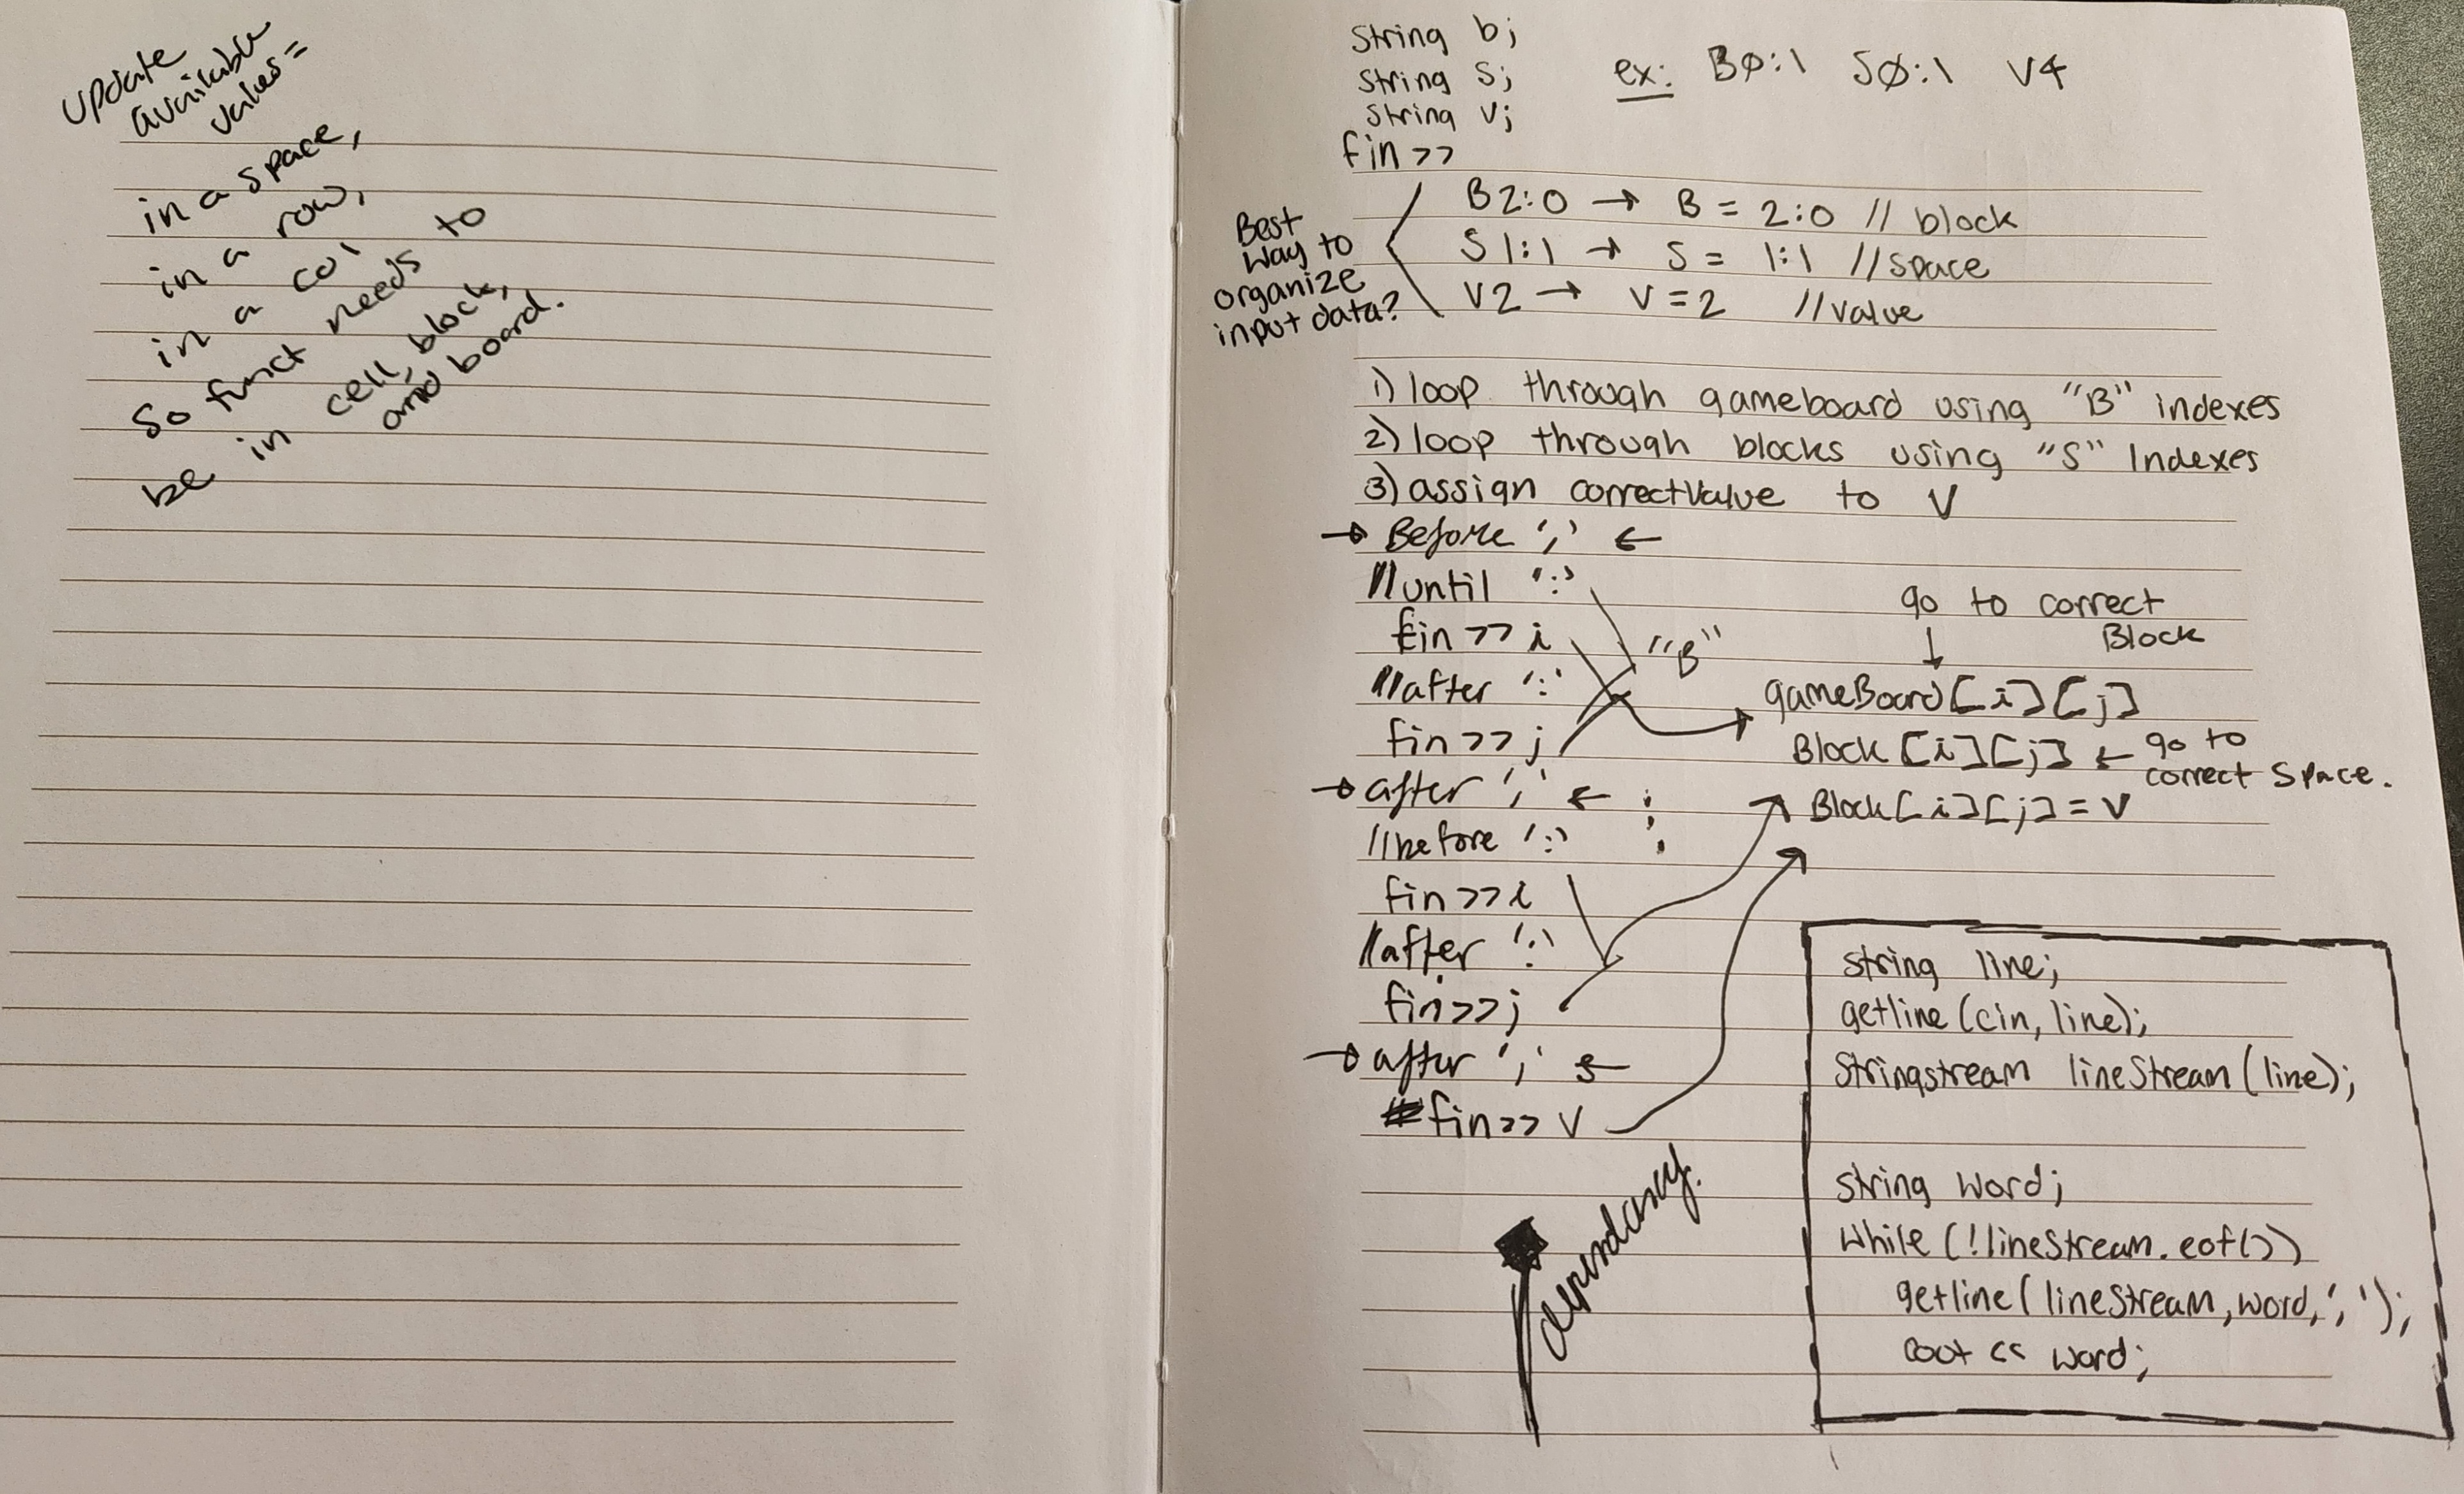 update
available
values =
in a space,
in a row,
in a col
So funct needs to
be in cell, block,
and board.
String b;
String s;
String v;
fin >>
ex: BØ:1 SØ:1 V4
Best
way to
organize
input data?
B2:0 → B = 2:0 // block
S1:1 → S = 1:1 // space
V2 → V = 2 // value
1) loop through gameboard using "B" indexes
2) loop through blocks using "S" Indexes
3) assign correctValue to V
→ Before ',' ←
// until ':'
fin >> i
// after ':'
fin >> j
"B"
go to correct
Block
↓
gameBoard[i][j]
Block[i][j] ← go to
correct space.
Block[i][j] = V
→ after ',' ←
// before ':'
fin >> i
// after ':'
fin >> j
→ after ',' ←
fin >> V
dependancy.
string line;
getline(cin, line);
Stringstream lineStream(line);
string word;
while (!lineStream.eof())
getline(lineStream, word, ',');
cout << word;